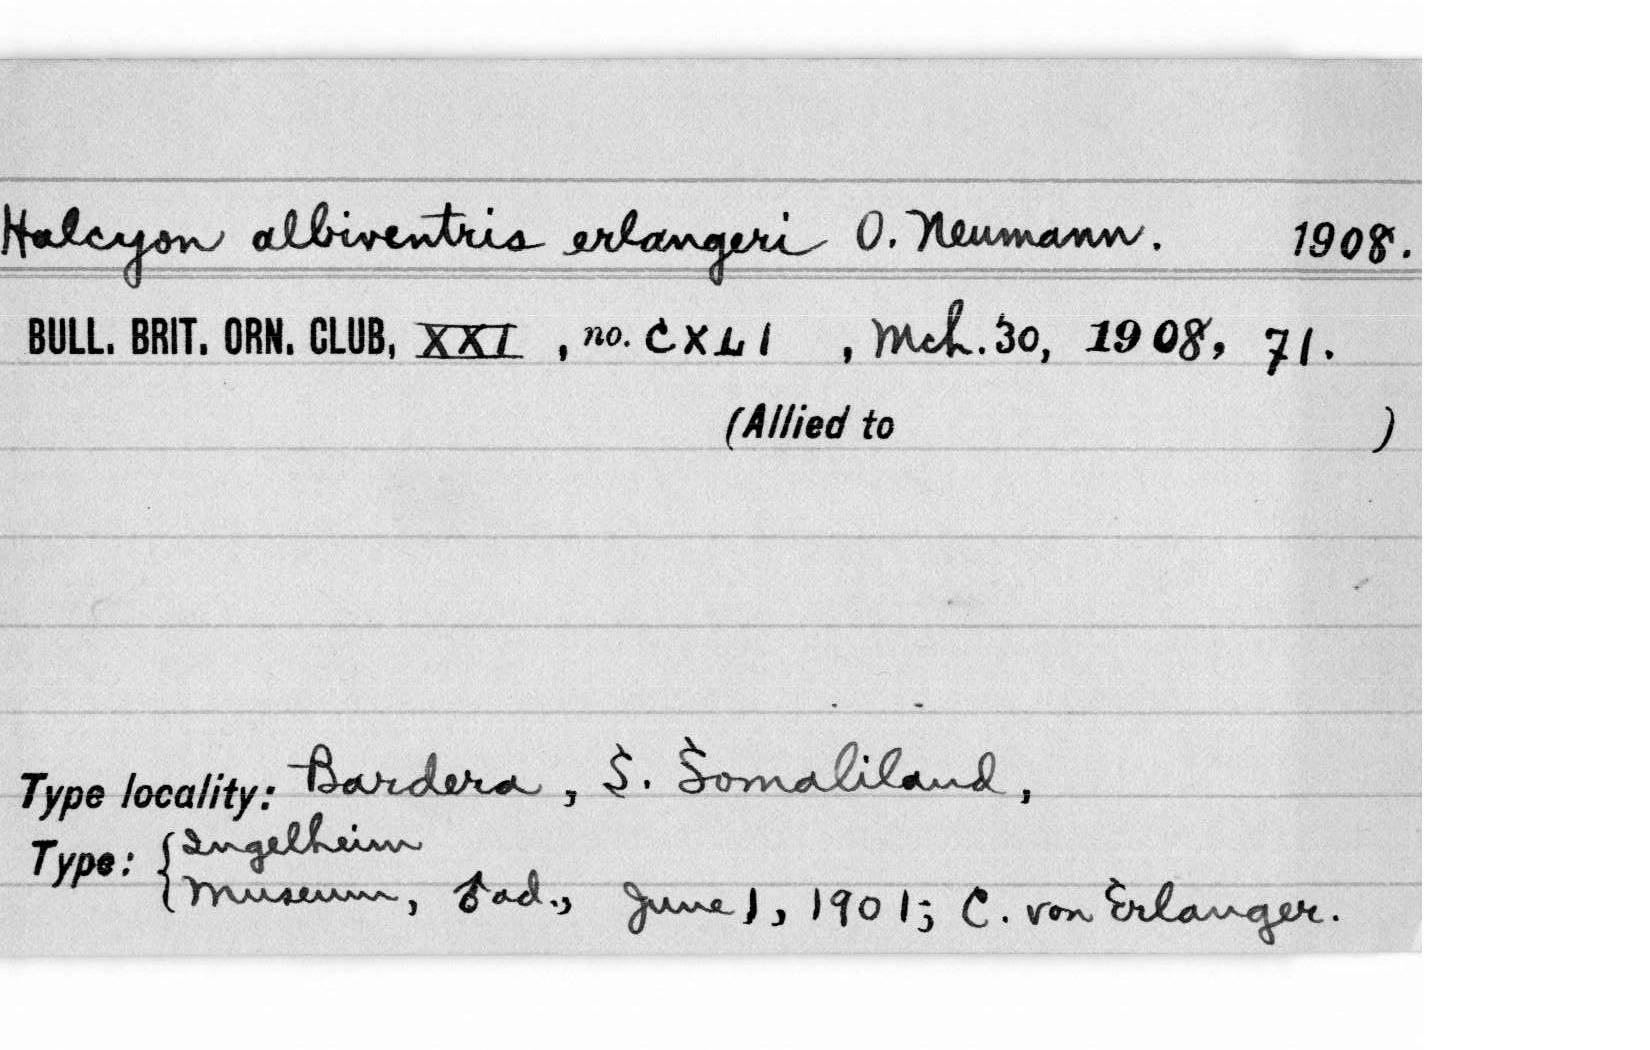 Halcyon albiventris erlangeri O. Neumann. 1908.
BULL. BRIT. ORN. CLUB, XXI, no. CXLI, Mch. 30, 1908, 71.
(Allied to )
Type locality: Bardera, S. Somaliland,
Type: { Ingelheim
Museum, ♂ ad., June 1, 1901; C. von Erlanger.